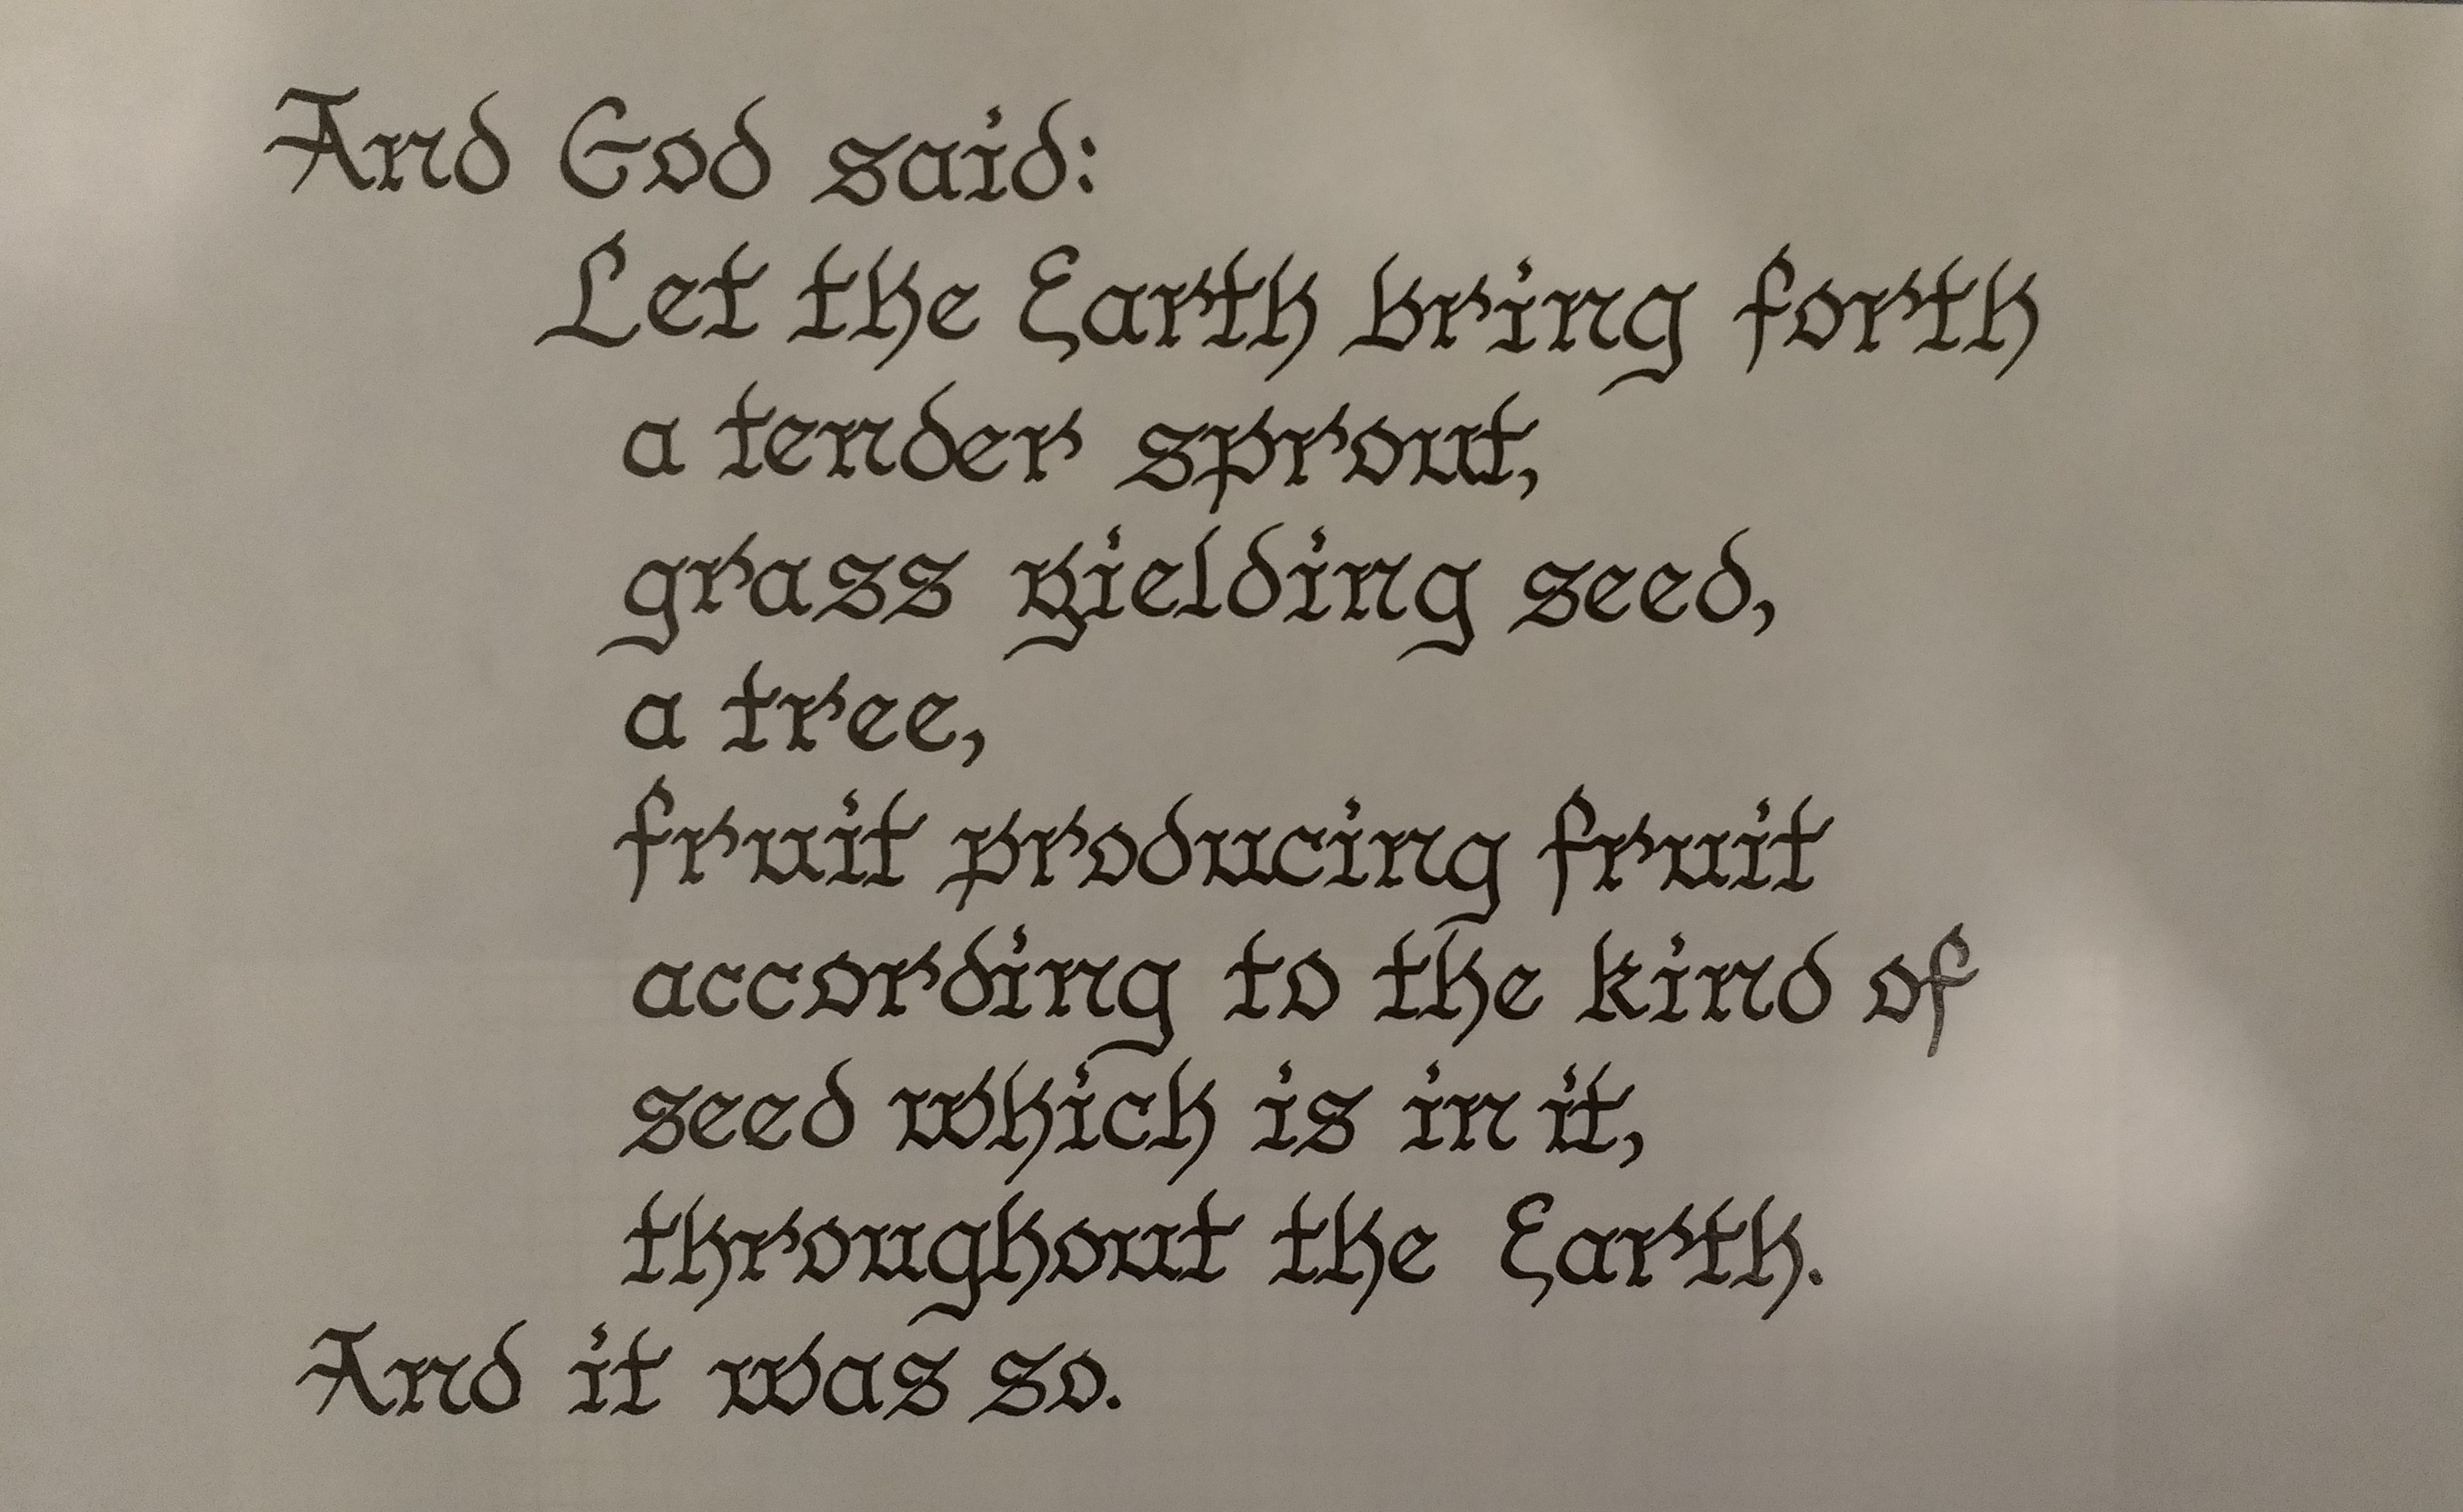 And God said:
Let the Earth bring forth
a tender sprout,
grass yielding seed,
a tree,
fruit producing fruit
according to the kind of
seed which is in it,
throughout the Earth.
And it was so.